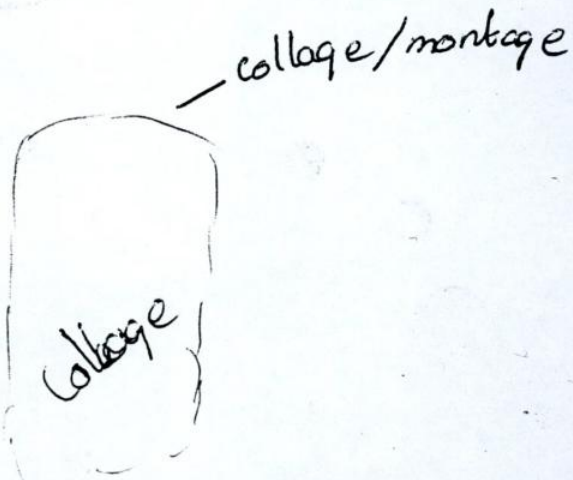 collage/montage
collage